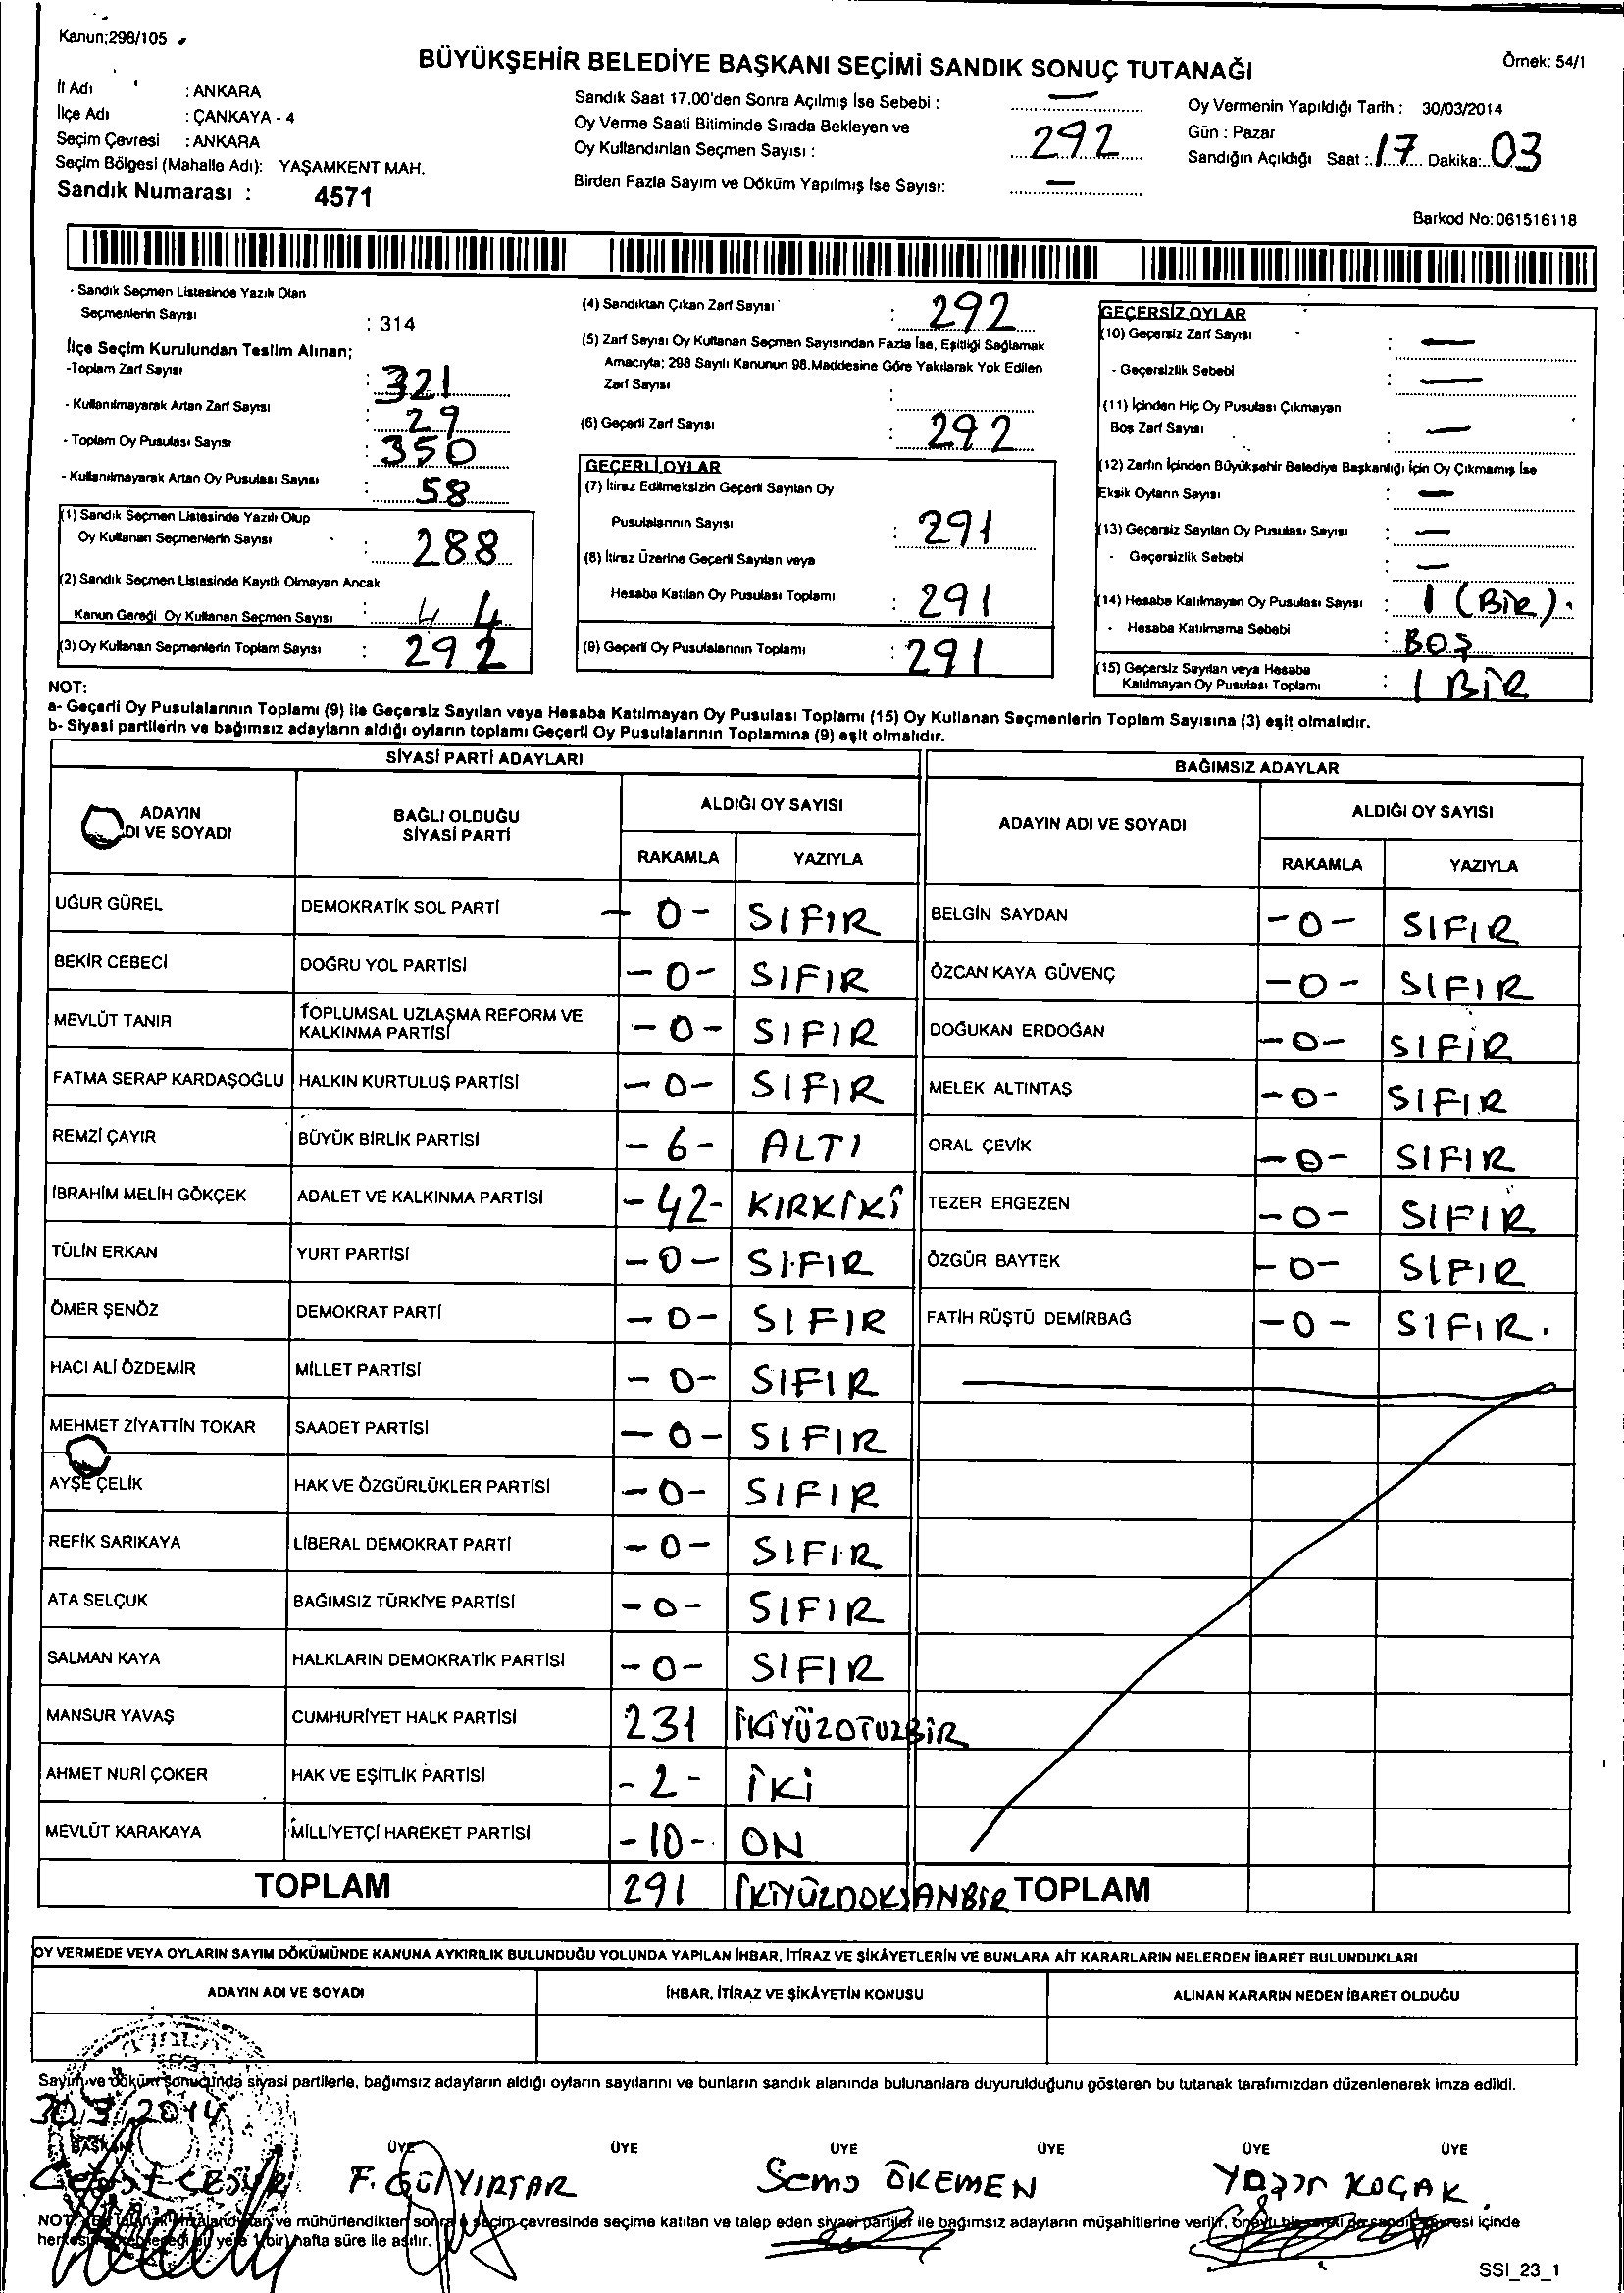 Kanun;298/105
BÜYÜKŞEHİR BELEDİYE BAŞKANI SEÇİMİ SANDIK SONUÇ TUTANAĞI
Örnek: 54/1
İl Adı : ANKARA
İlçe Adı : ÇANKAYA - 4
Seçim Çevresi : ANKARA
Seçim Bölgesi (Mahalle Adı): YAŞAMKENT MAH.
Sandık Numarası : 4571
Sandık Saat 17.00'den Sonra Açılmış İse Sebebi : —
Oy Verme Saati Bitiminde Sırada Bekleyen ve
Oy Kullandırılan Seçmen Sayısı : 292
Birden Fazla Sayım ve Döküm Yapılmış İse Sayısı: —
Oy Vermenin Yapıldığı Tarih : 30/03/2014
Gün : Pazar
Sandığın Açıldığı Saat : 17 Dakika: 03
Barkod No:061516118
- Sandık Seçmen Listesinde Yazılı Olan
Seçmenlerin Sayısı : 314
İlçe Seçim Kurulundan Teslim Alınan;
-Toplam Zarf Sayısı : 321
- Kullanılmayarak Artan Zarf Sayısı : 29
- Toplam Oy Pusulası Sayısı : 350
- Kullanılmayarak Artan Oy Pusulası Sayısı : 58
(1) Sandık Seçmen Listesinde Yazılı Olup
Oy Kullanan Seçmenlerin Sayısı : 288
(2) Sandık Seçmen Listesinde Kayıtlı Olmayan Ancak
Kanun Gereği Oy Kullanan Seçmen Sayısı : 4 4
(3) Oy Kullanan Seçmenlerin Toplam Sayısı : 292
(4) Sandıktan Çıkan Zarf Sayısı : 292
(5) Zarf Sayısı Oy Kullanan Seçmen Sayısından Fazla İse, Eşitliği Sağlamak
Amacıyla; 298 Sayılı Kanunun 98.Maddesine Göre Yakılarak Yok Edilen
Zarf Sayısı :
(6) Geçerli Zarf Sayısı : 292
GEÇERLİ OYLAR
(7) İtiraz Edilmeksizin Geçerli Sayılan Oy
Pusulalarının Sayısı : 291
(8) İtiraz Üzerine Geçerli Sayılan veya
Hesaba Katılan Oy Pusulası Toplamı : 291
(9) Geçerli Oy Pusulalarının Toplamı : 291
GEÇERSİZ OYLAR
(10) Geçersiz Zarf Sayısı : —
- Geçersizlik Sebebi : —
(11) İçinden Hiç Oy Pusulası Çıkmayan
Boş Zarf Sayısı : —
(12) Zarfın İçinden Büyükşehir Belediye Başkanlığı İçin Oy Çıkmamış İse
Eksik Oyların Sayısı : —
(13) Geçersiz Sayılan Oy Pusulası Sayısı : —
- Geçersizlik Sebebi : —
(14) Hesaba Katılmayan Oy Pusulası Sayısı : 1 (BİR).
- Hesaba Katılmama Sebebi : BOŞ
(15) Geçersiz Sayılan veya Hesaba
Katılmayan Oy Pusulası Toplamı : 1 BİR
NOT:
a- Geçerli Oy Pusulalarının Toplamı (9) ile Geçersiz Sayılan veya Hesaba Katılmayan Oy Pusulası Toplamı (15) Oy Kullanan Seçmenlerin Toplam Sayısına (3) eşit olmalıdır.
b- Siyasi partilerin ve bağımsız adayların aldığı oyların toplamı Geçerli Oy Pusulalarının Toplamına (9) eşit olmalıdır.
SİYASİ PARTİ ADAYLARI
ADAYIN
DI VE SOYADI
BAĞLI OLDUĞU
SİYASİ PARTİ
ALDIĞI OY SAYISI
RAKAMLA YAZIYLA
UĞUR GÜREL DEMOKRATİK SOL PARTİ - 0 - SIFIR
BEKİR CEBECİ DOĞRU YOL PARTİSİ - 0 - SIFIR
MEVLÜT TANIR TOPLUMSAL UZLAŞMA REFORM VE
KALKINMA PARTİSİ - 0 - SIFIR
FATMA SERAP KARDAŞOĞLU HALKIN KURTULUŞ PARTİSİ - 0 - SIFIR
REMZİ ÇAYIR BÜYÜK BİRLİK PARTİSİ - 6 - ALTI
İBRAHİM MELİH GÖKÇEK ADALET VE KALKINMA PARTİSİ - 42 - KIRKİKİ
TÜLİN ERKAN YURT PARTİSİ - 0 - SIFIR
ÖMER ŞENÖZ DEMOKRAT PARTİ - 0 - SIFIR
HACI ALİ ÖZDEMİR MİLLET PARTİSİ - 0 - SIFIR
MEHMET ZİYATTİN TOKAR SAADET PARTİSİ - 0 - SIFIR
AYŞE ÇELİK HAK VE ÖZGÜRLÜKLER PARTİSİ - 0 - SIFIR
REFİK SARIKAYA LİBERAL DEMOKRAT PARTİ - 0 - SIFIR
ATA SELÇUK BAĞIMSIZ TÜRKİYE PARTİSİ - 0 - SIFIR
SALMAN KAYA HALKLARIN DEMOKRATİK PARTİSİ - 0 - SIFIR
MANSUR YAVAŞ CUMHURİYET HALK PARTİSİ 231 İKİYÜZOTUZBİR
AHMET NURİ ÇOKER HAK VE EŞİTLİK PARTİSİ - 2 - İKİ
MEVLÜT KARAKAYA MİLLİYETÇİ HAREKET PARTİSİ - 10 - ON
TOPLAM 291 İKİYÜZDOKSANBİR
BAĞIMSIZ ADAYLAR
ADAYIN ADI VE SOYADI
ALDIĞI OY SAYISI
RAKAMLA YAZIYLA
BELGİN SAYDAN - 0 - SIFIR
ÖZCAN KAYA GÜVENÇ - 0 - SIFIR
DOĞUKAN ERDOĞAN - 0 - SIFIR
MELEK ALTINTAŞ - 0 - SIFIR
ORAL ÇEVİK - 0 - SIFIR
TEZER ERGEZEN - 0 - SIFIR
ÖZGÜR BAYTEK - 0 - SIFIR
FATİH RÜŞTÜ DEMİRBAĞ - 0 - SIFIR.
TOPLAM
OY VERMEDE VEYA OYLARIN SAYIM DÖKÜMÜNDE KANUNA AYKIRILIK BULUNDUĞU YOLUNDA YAPILAN İHBAR, İTİRAZ VE ŞİKÂYETLERİN VE BUNLARA AİT KARARLARIN NELERDEN İBARET BULUNDUKLARI
ADAYIN ADI VE SOYADI İHBAR, İTİRAZ VE ŞİKÂYETİN KONUSU ALINAN KARARIN NEDEN İBARET OLDUĞU
Sayım ve döküm sonucunda siyasi partilerle, bağımsız adayların aldığı oyların sayılarını ve bunların sandık alanında bulunanlara duyurulduğunu gösteren bu tutanak tarafımızdan düzenlenerek imza edildi.
30/3/2014
BAŞKAN ÜYE ÜYE ÜYE ÜYE ÜYE ÜYE
F. GÜL YIRTAR Sema ÖKEMEN Yaşar KOÇAK
NOT: ve mühürlendikten sonra seçim çevresinde seçime katılan ve talep eden siyasi partiler ile bağımsız adayların müşahitlerine verilir, içinde
yere 1(bir) hafta süre ile asılır.
SSI_23_1